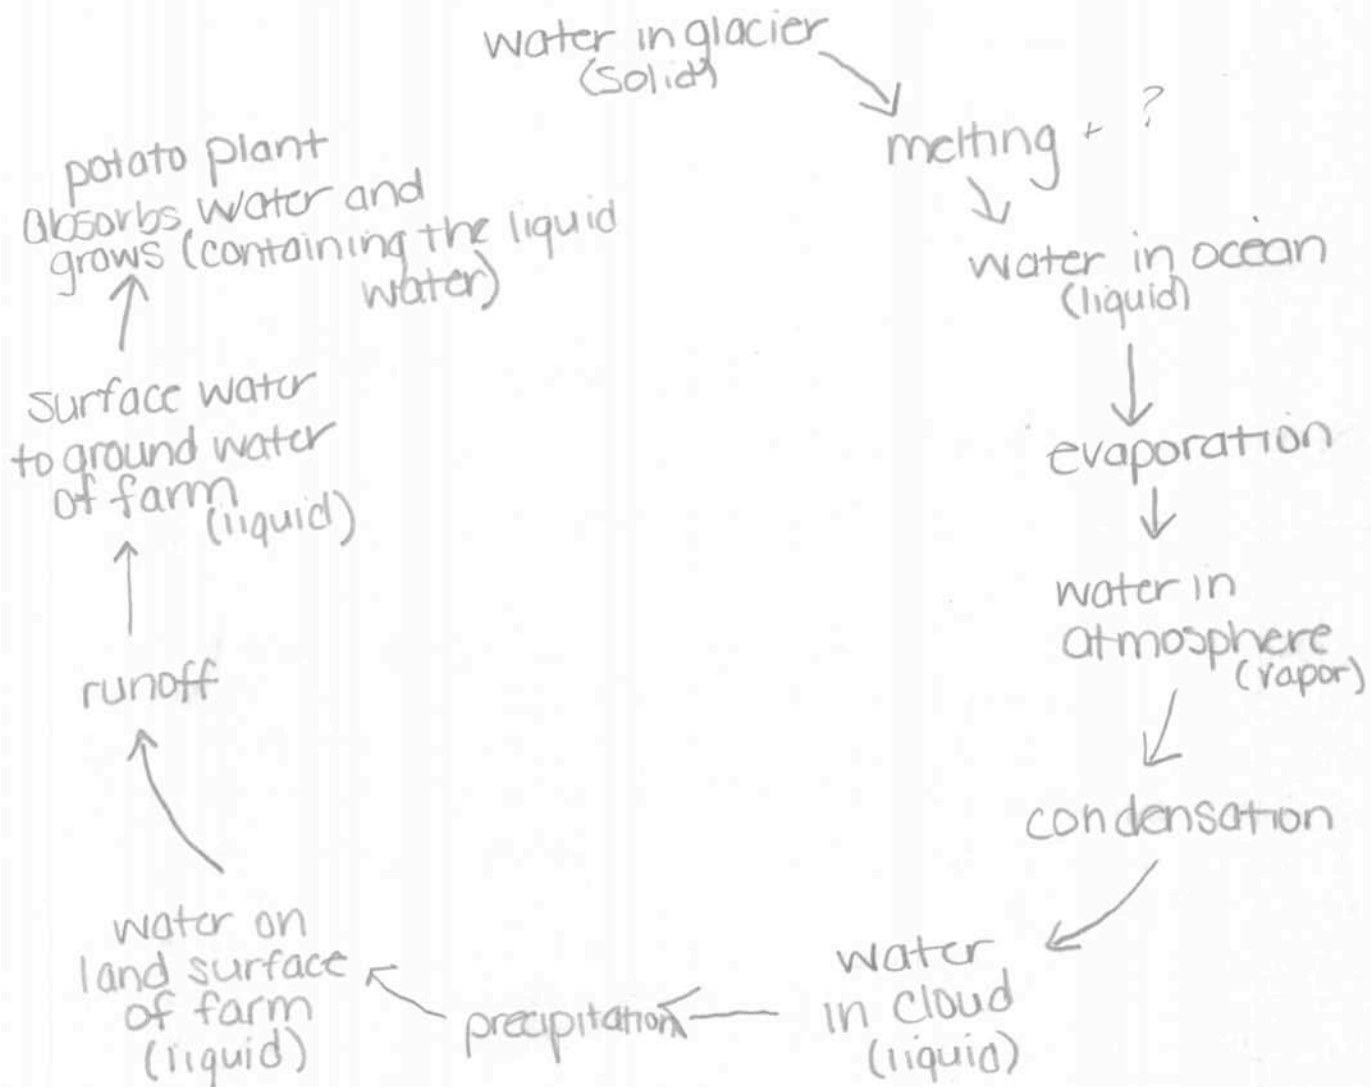 water in glacier
(solid)
melting + ?
water in ocean
(liquid)
evaporation
water in
atmosphere
(vapor)
condensation
water
in cloud
(liquid)
precipitation
water on
land surface
of farm
(liquid)
runoff
surface water
to ground water
of farm
(liquid)
potato plant
absorbs water and
grows (containing the liquid
water)